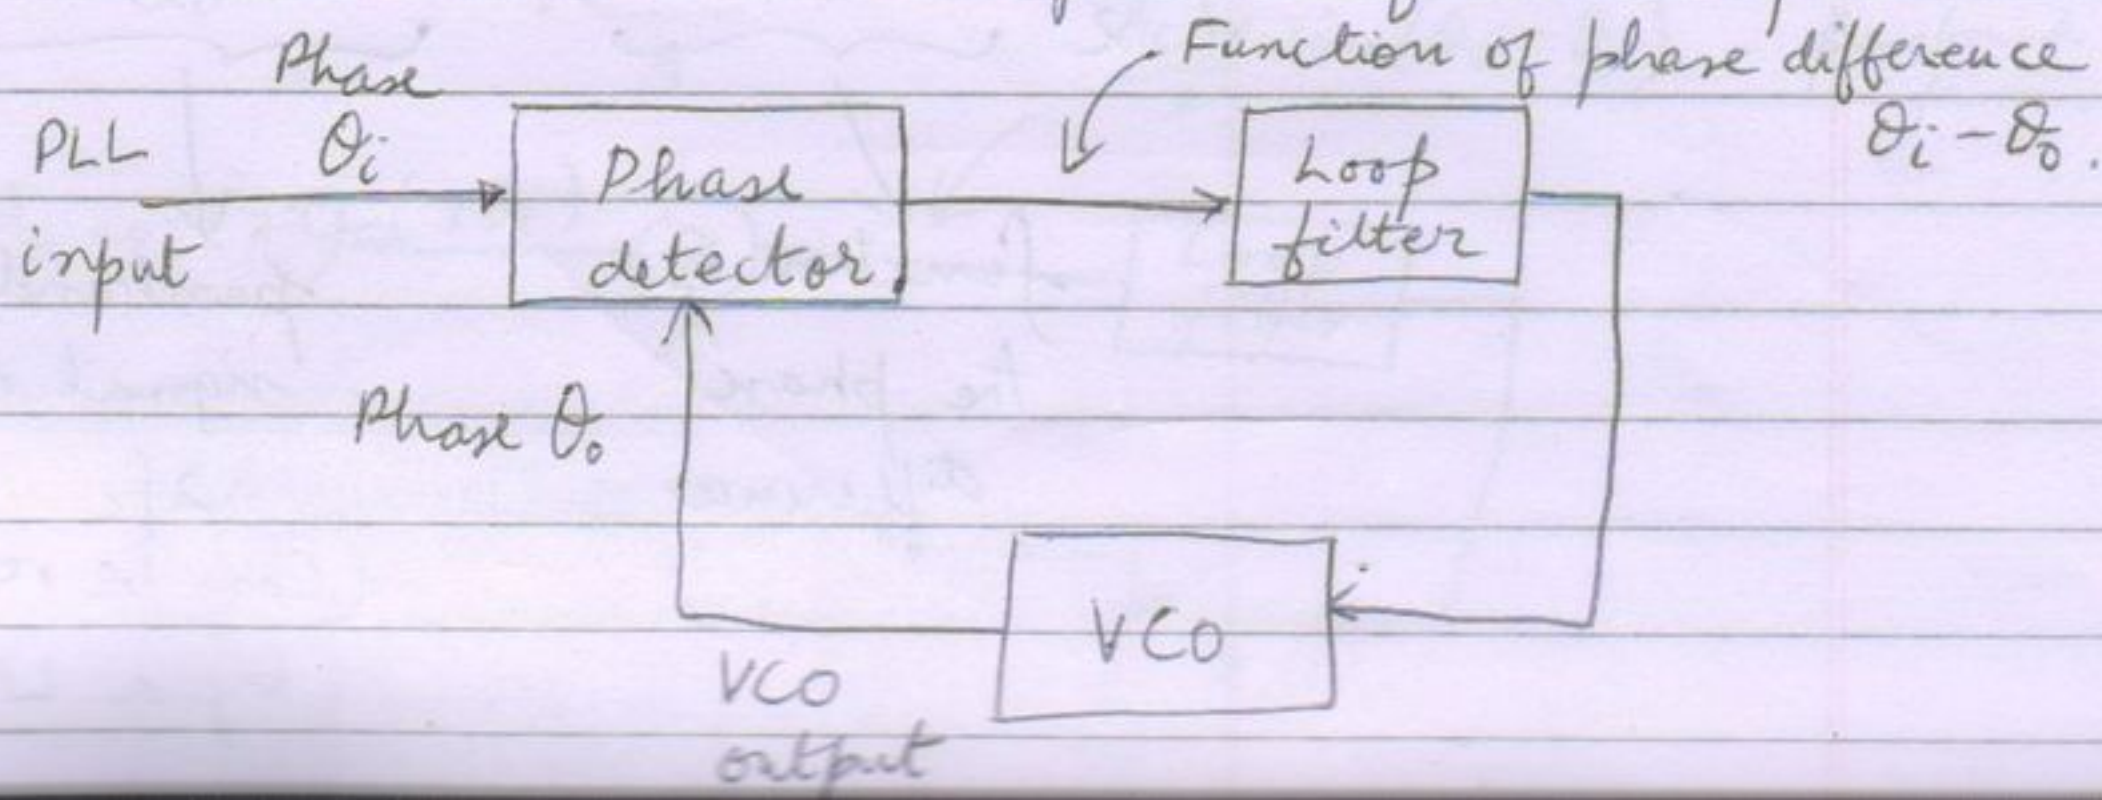 Function of phase difference
θi - θo.
Phase
θi
PLL
input
Phase
detector
Loop
filter
Phase θo
VCO
VCO
output